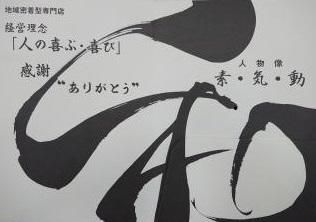 地域密着型専門店
経営理念
「人の喜ぶ・喜び」
感謝
“ありがとう”
人物像
素・気・動
和